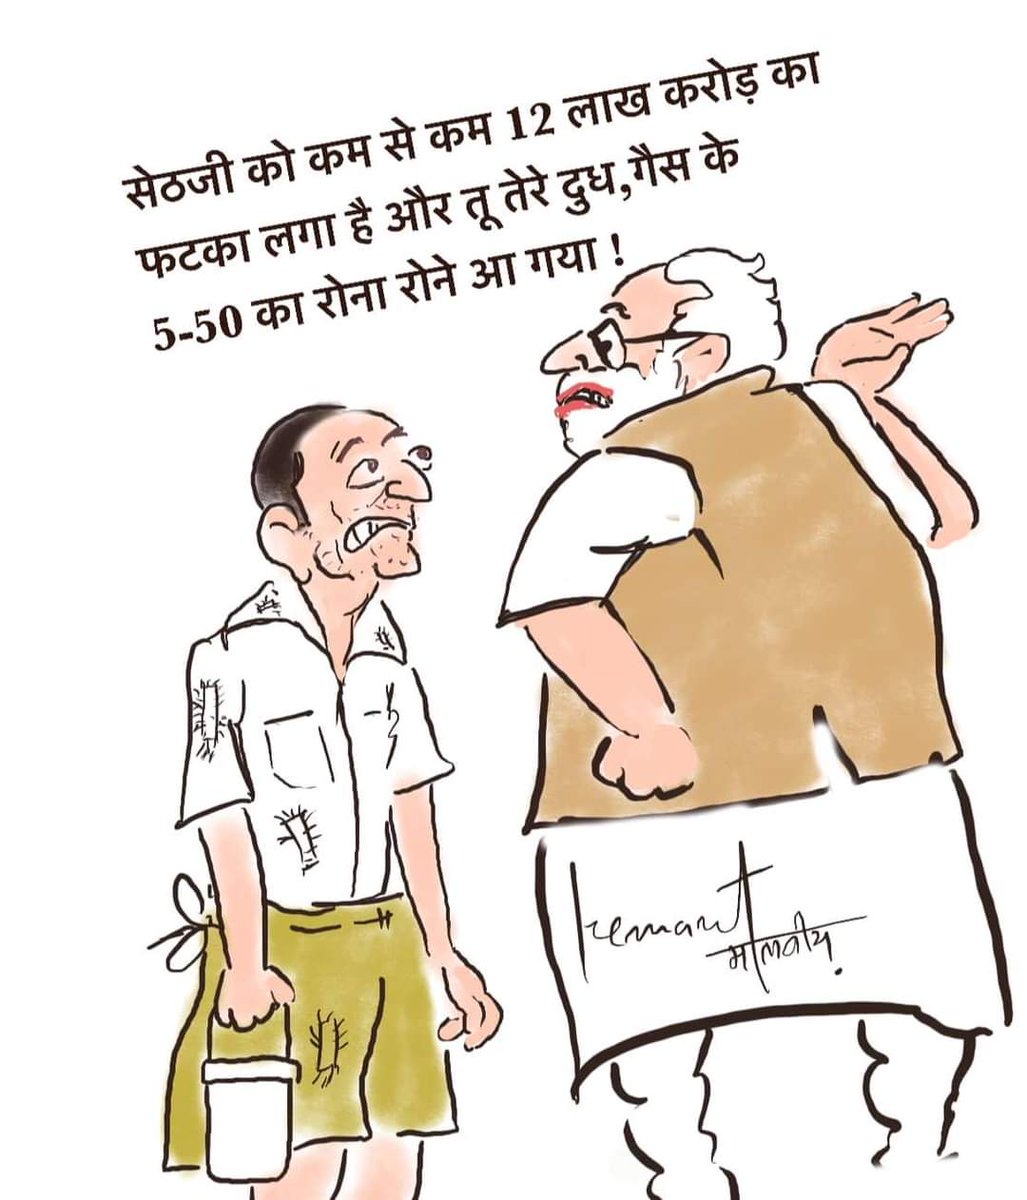 सेठजी को कम से कम 12 लाख करोड़ का
फटका लगा है और तू तेरे दुध,गैस के
5-50 का रोना रोने आ गया !
Hemant
मालवीय.